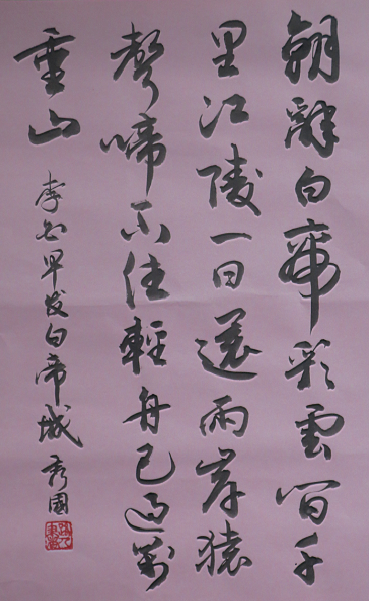 朝辭白帝彩雲間千
里江陵一日還兩岸猿
聲啼不住輕舟已過萬
重山 李白早发白帝城 秀國